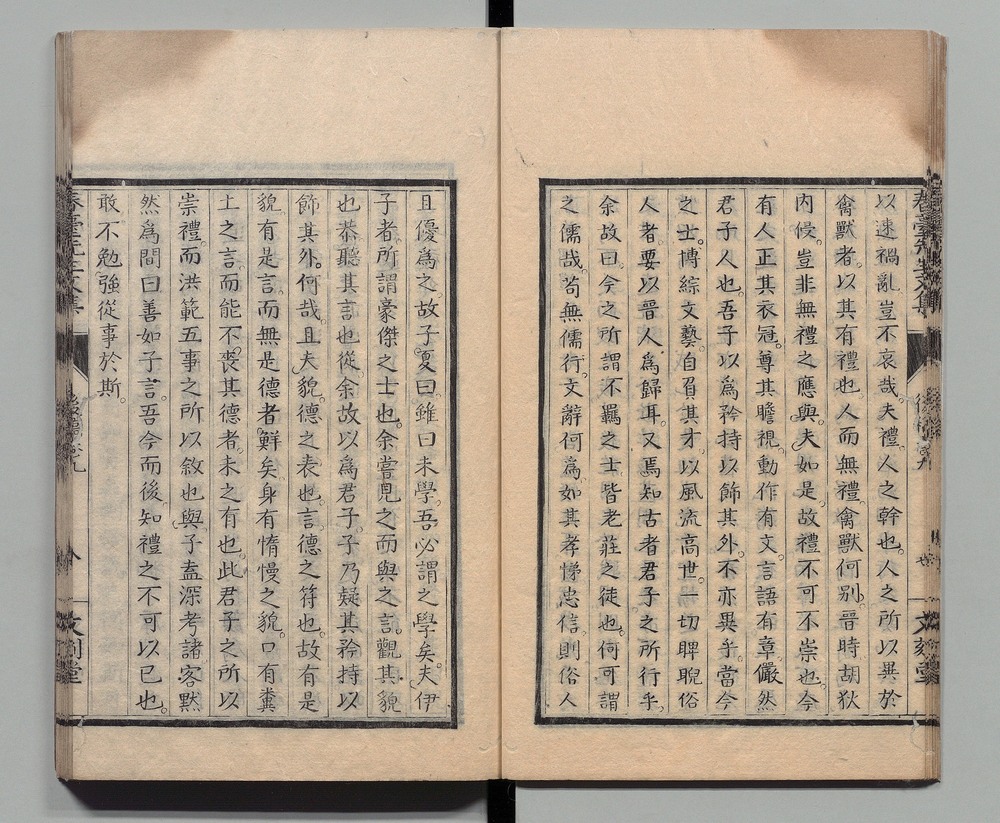 以速禍亂。豈不哀哉。夫禮。人之幹也。人之所以異於
禽獸者。以其有禮也。人而無禮。禽獸何別。晉時胡狄
內侵。豈非無禮之應與。夫如是。故禮不可不崇也。今
有人正其衣冠。尊其瞻視。動作有文。言語有章。儼然
君子人也。吾子以爲矜持以飾其外。不亦異乎。當今
之士。博綜文藝。自負其才。以風流高世。一切睥睨俗
人者。要以晉人爲歸耳。又焉知古者君子之所行乎。
余故曰。今之所謂不羈之士。皆老莊之徒也。何可謂
之儒哉。苟無儒行。文辭何爲。如其孝悌忠信。則俗人
且優爲之。故子夏曰。雖曰未學。吾必謂之學矣。夫伊
子者。所謂豪傑之士也。余嘗見之而與之言。觀其貌
也恭。聽其言也從。余故以爲君子。子乃疑其矜持以
飾其外。何哉。且夫貌。德之表也。言。德之符也。故有是
貌。有是言。而無是德者。鮮矣。身有惰慢之貌。口有糞
土之言。而能不喪其德者。未之有也。此君子之所以
崇禮。而洪範五事之所以敘也與。子盍深考諸。客黙
然爲間曰。善如子言。吾今而後知禮之不可以已也。
敢不勉強從事於斯。
春臺先生文集
後編卷九
八
文刻堂